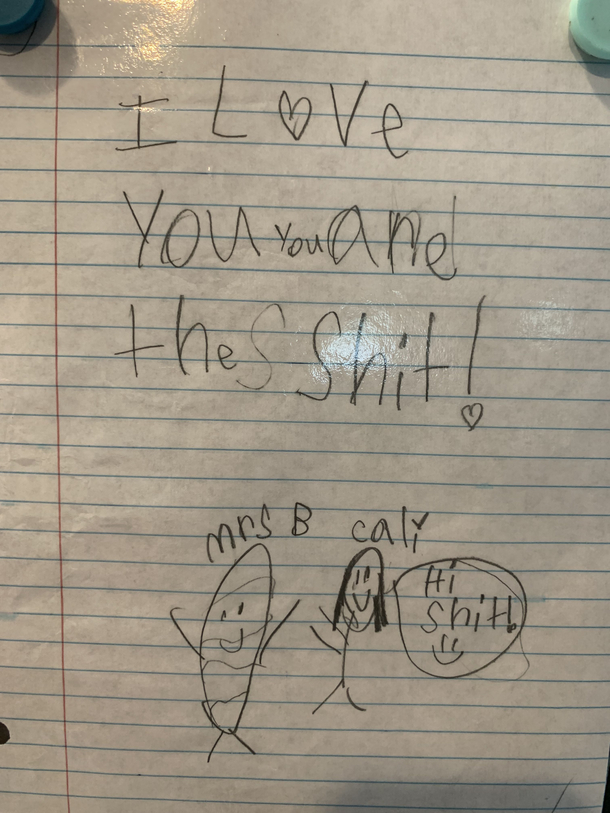 I L♡Ve
You You and
the S Shit!
mrs B cali
Hi
Shit!